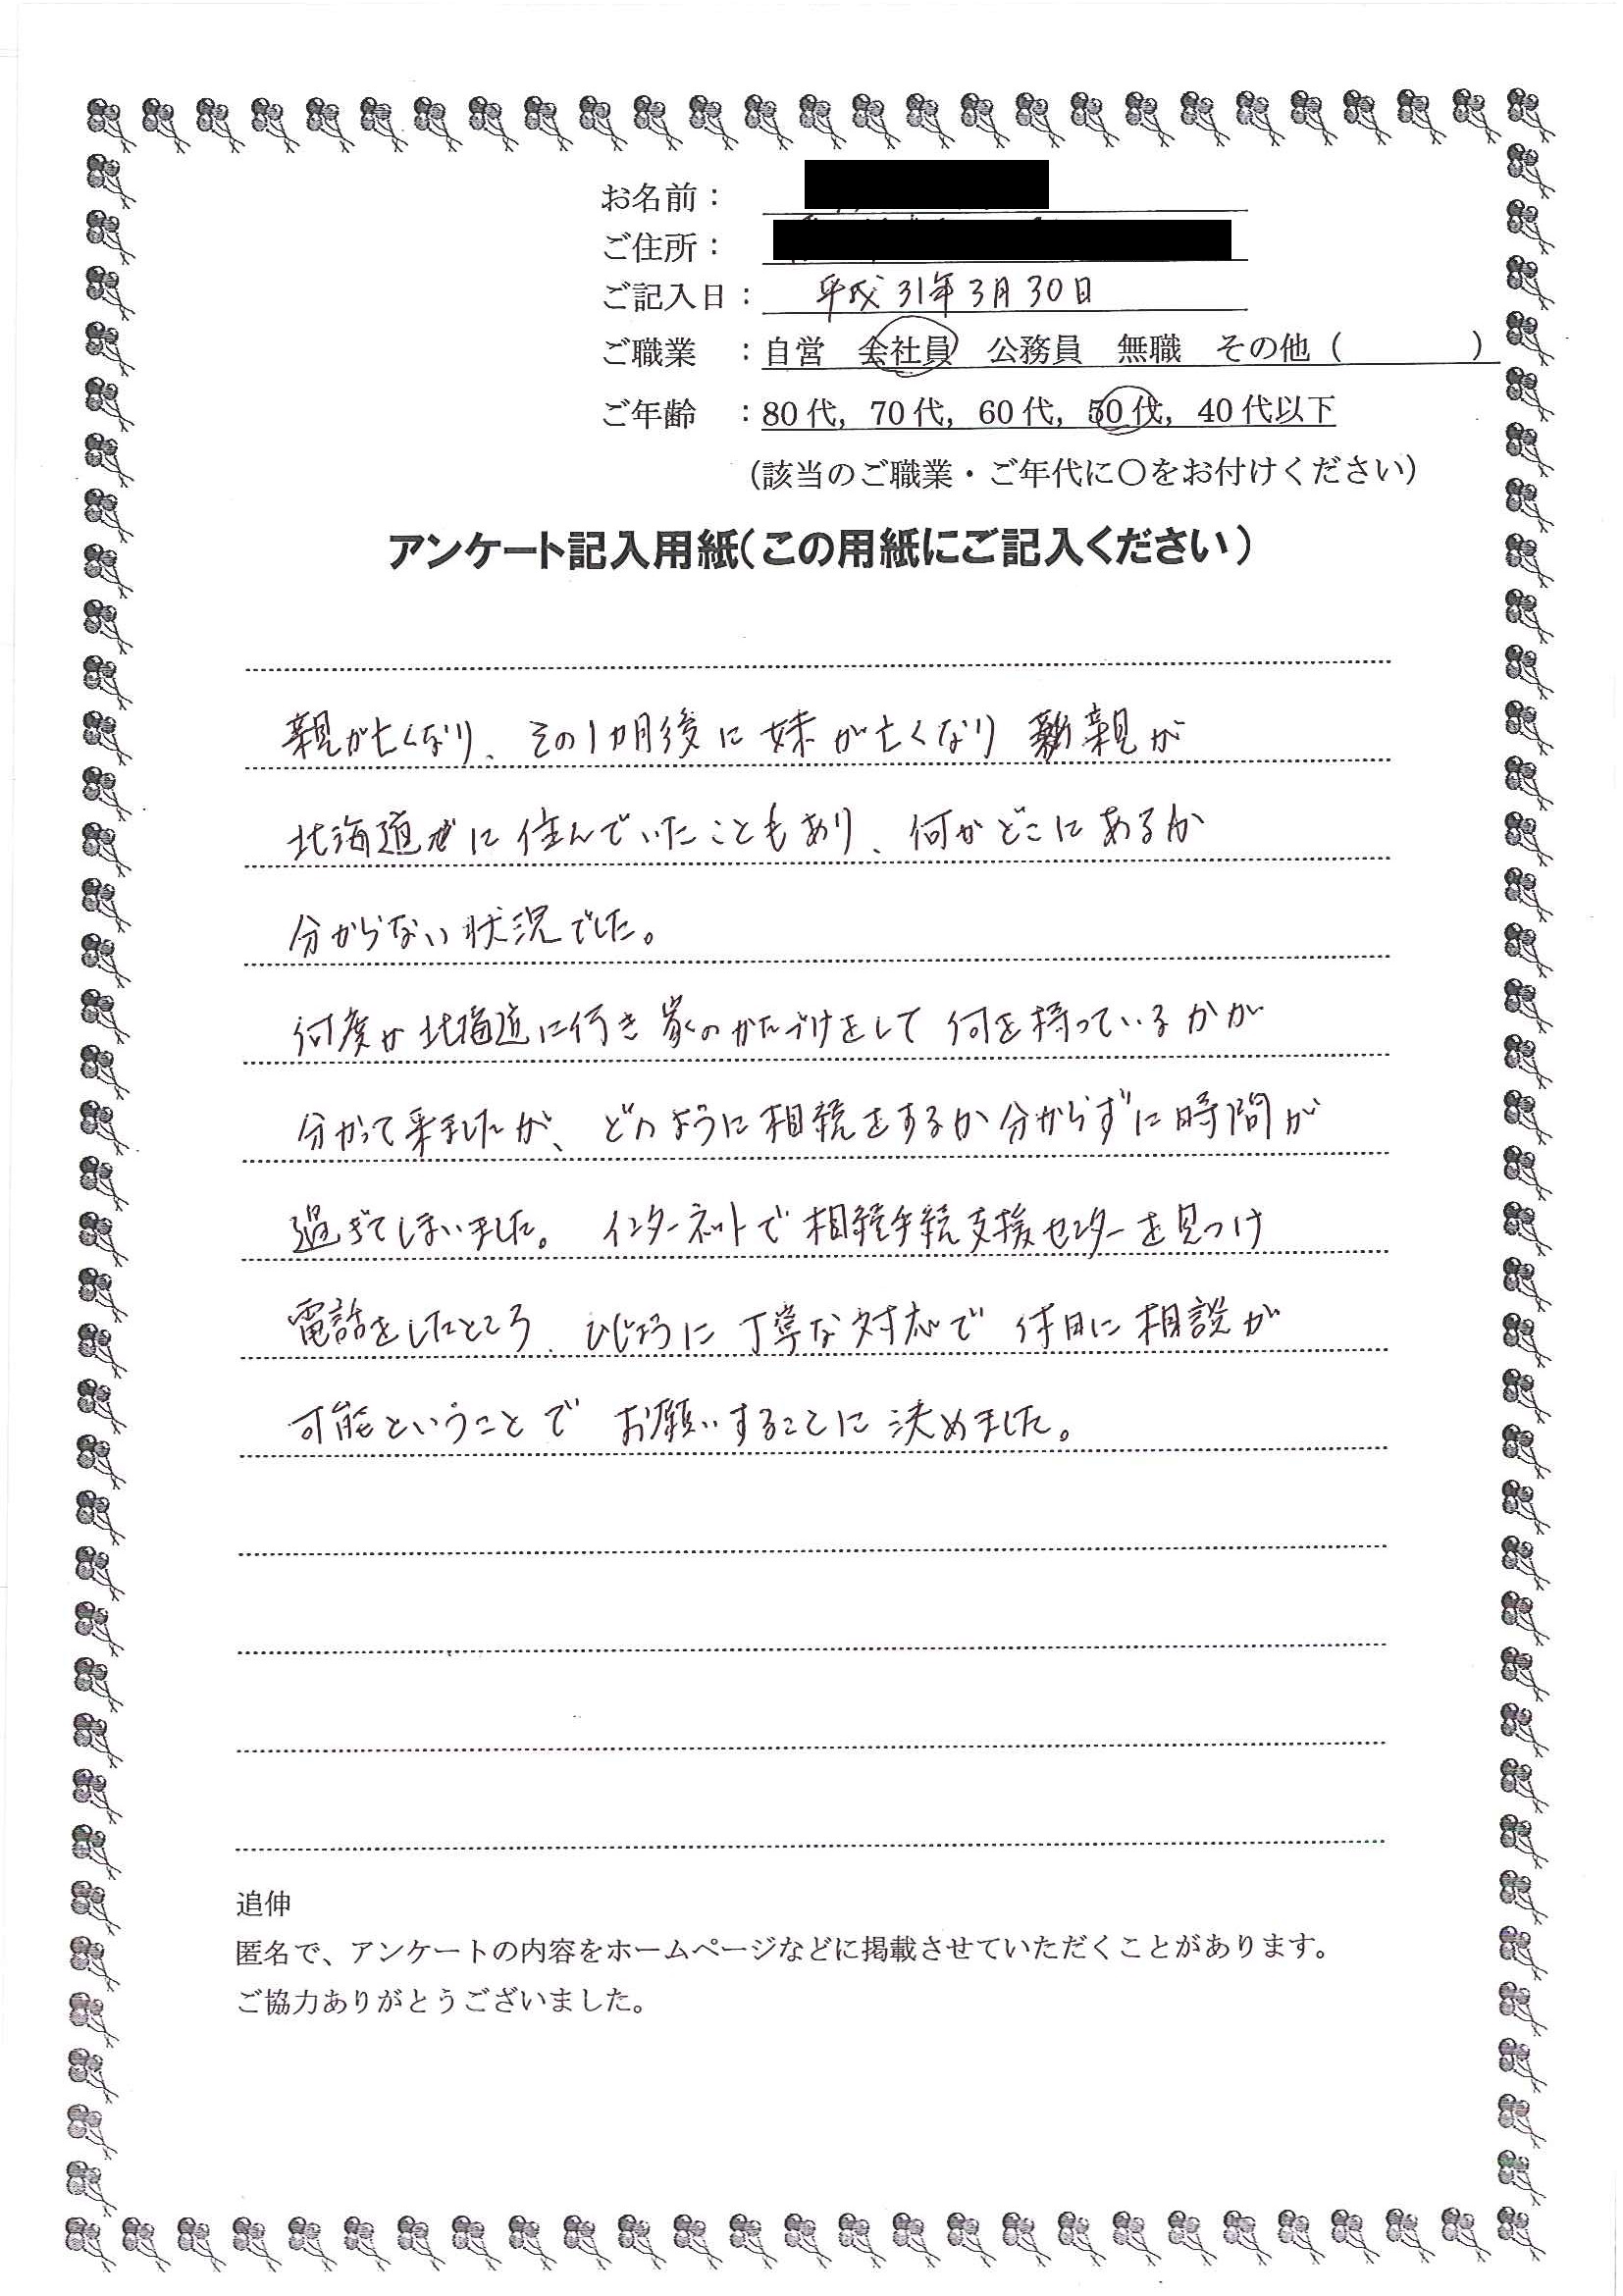 お名前：
ご住所：
ご記入日： 平成31年3月30日
ご職業 ：自営 会社員 公務員 無職 その他（ ）
ご年齢 ：80代，70代，60代，50代，40代以下
（該当のご職業・ご年代に〇をお付けください）
アンケート記入用紙（この用紙にご記入ください）
親が亡くなり、その1カ月後に妹が亡くなり 親が
北海道に住んでいたこともあり、何がどこにあるか
分からない状況でした。
何度か北海道に行き家のかたづけをして何を持っているかが
分かって来ましたが、どのように相続をするか分からずに時間が
過ぎてしまいました。インターネットで相続手続支援センターを見つけ
電話をしたところ、ひじょうに丁寧な対応で休日に相談が
可能ということでお願いすることに決めました。
追伸
匿名で、アンケートの内容をホームページなどに掲載させていただくことがあります。
ご協力ありがとうございました。